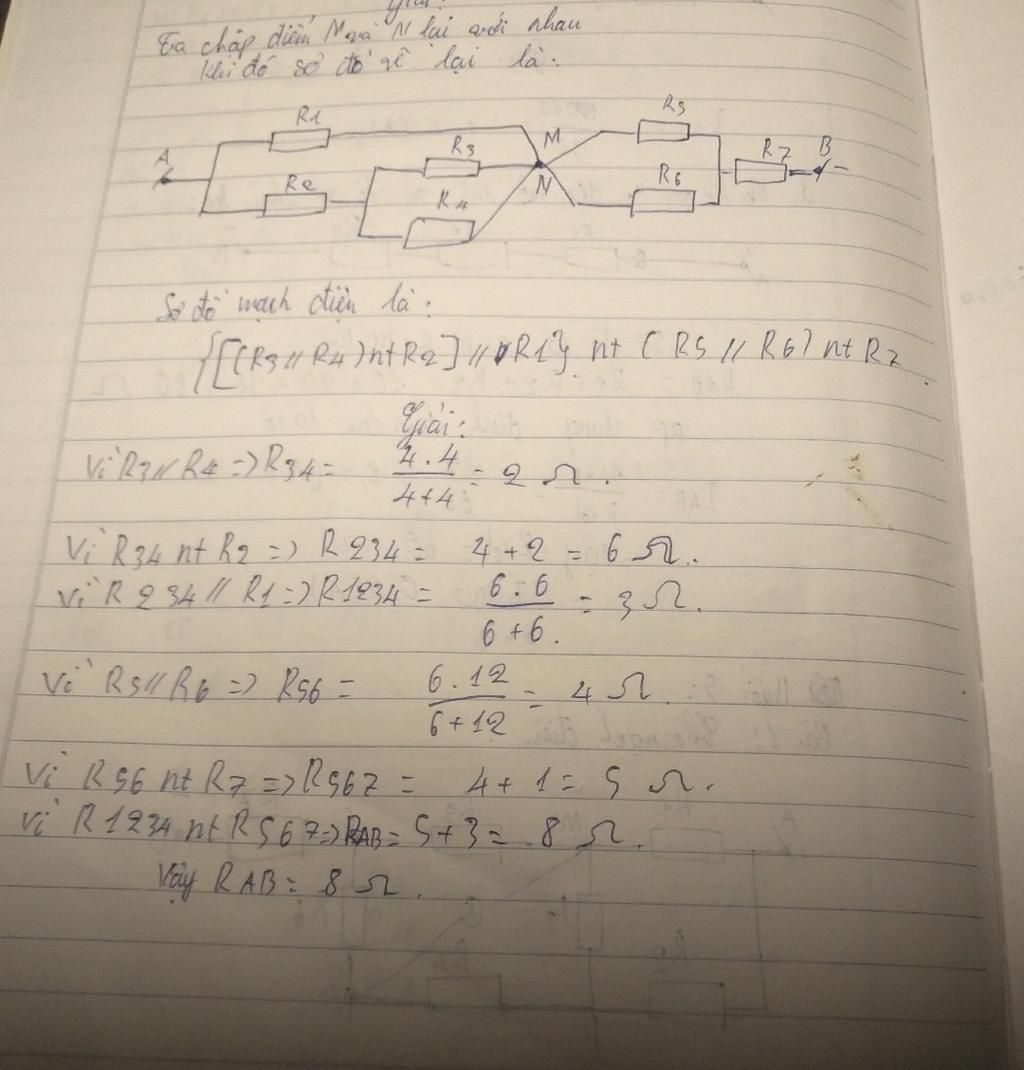 Giải:
Ta chập điểm M và N lại với nhau
Khi đó sơ đồ vẽ lại là:
A R1 R2 R3 R4 M N R5 R6 R7 B -
Sơ đồ mạch điện là:
{[(R3 // R4) nt R2] // R1} nt (R5 // R6) nt R7.
Giải:
Vì R3 // R4 => R34 = \frac{4.4}{4+4} = 2 Ω.
Vì R34 nt R2 => R234 = 4 + 2 = 6 Ω.
Vì R234 // R1 => R1234 = \frac{6.6}{6+6.} = 3 Ω.
Vì R5 // R6 => R56 = \frac{6.12}{6+12} = 4 Ω.
Vì R56 nt R7 => R567 = 4 + 1 = 5 Ω.
Vì R1234 nt R567 => RAB = 5 + 3 = 8 Ω.
Vậy RAB = 8 Ω.